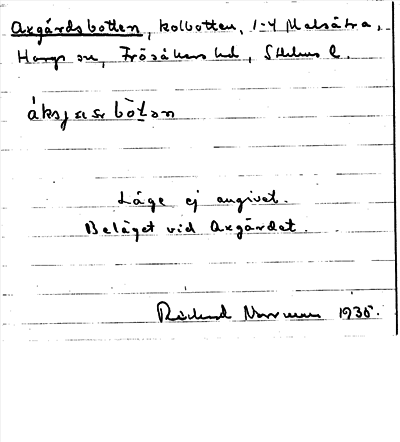 Axgårdsbotten, kolbotten, 1-4 Malsätra,
Hargs sn, Frösåkers hd, Sthlms l.
Läge ej angivet.
Beläget vid Axgärdet.
Rickard Norrman 1935.